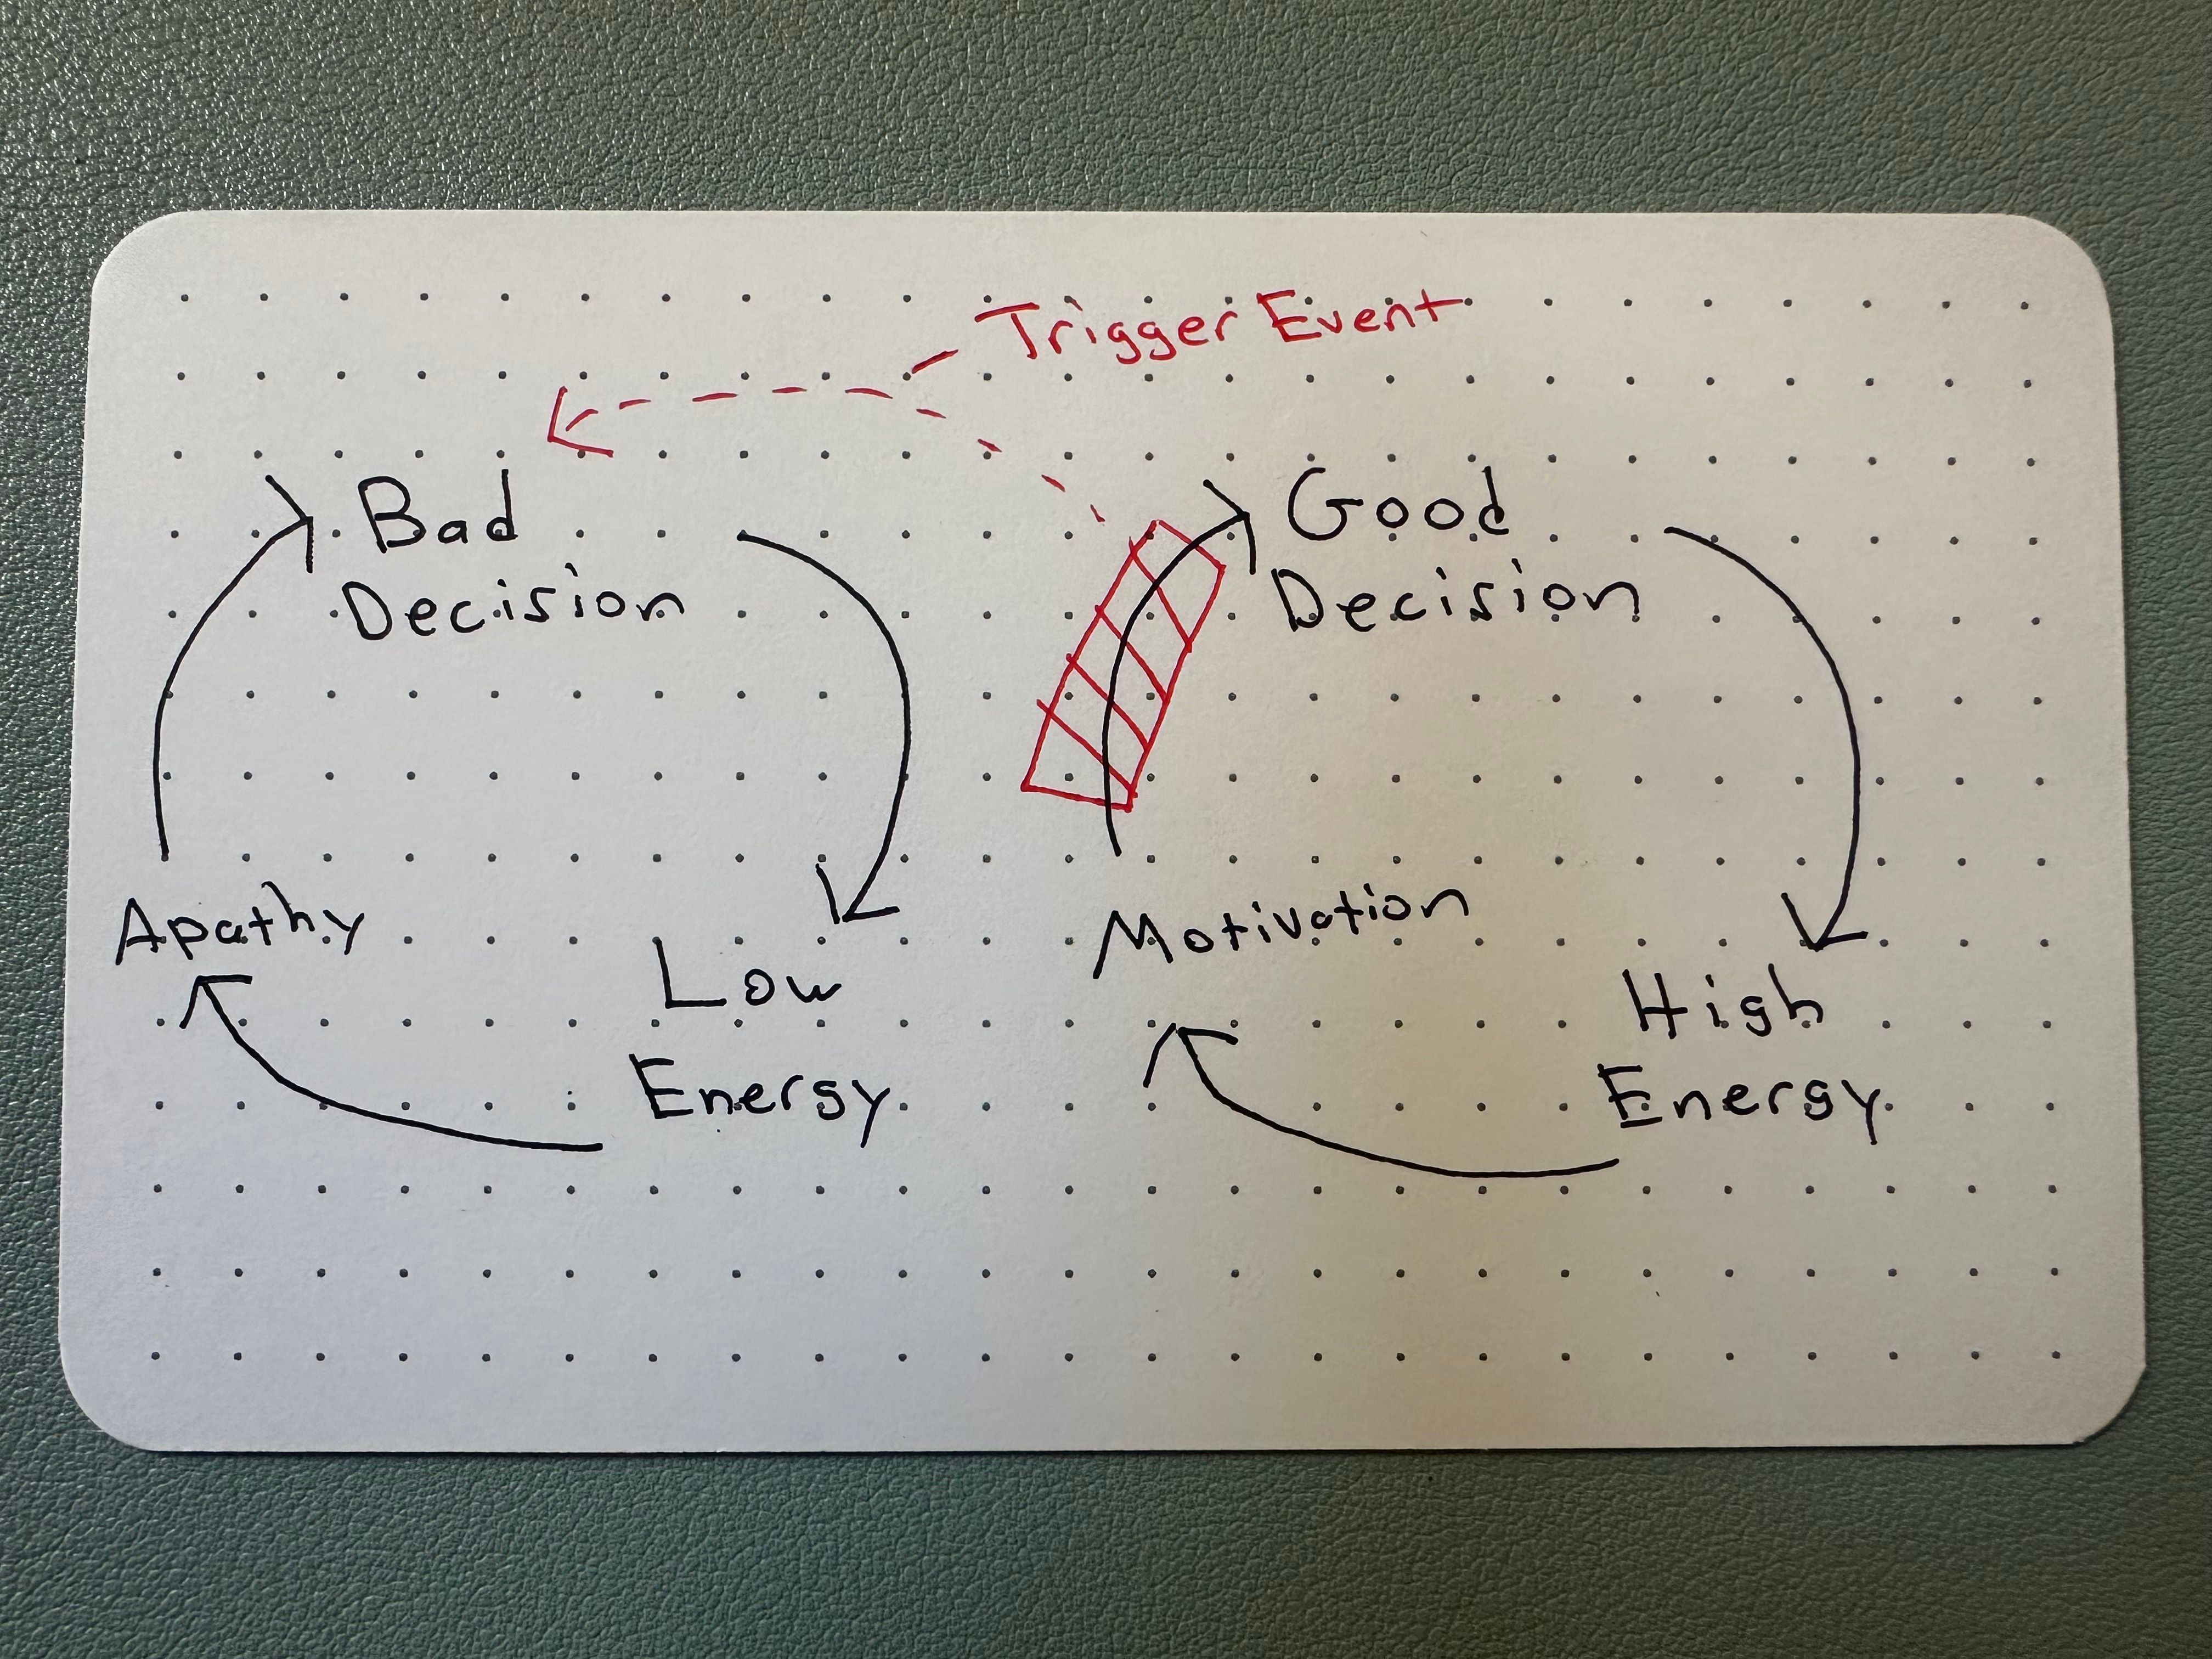 Trigger Event
Bad
Decision
Good
Decision
Apathy
Low
Energy
Motivation
High
Energy